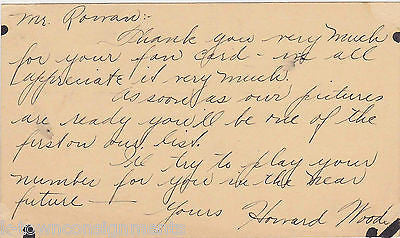 Mr. Rowan:-
Thank you very much
for your fan card - we all
appreciate it very much.
As soon as our pictures
are ready you'll be one of the
first on our list.
I'll try to play your
number for you in the near
future —
Yours Howard Woods
brownconsignments